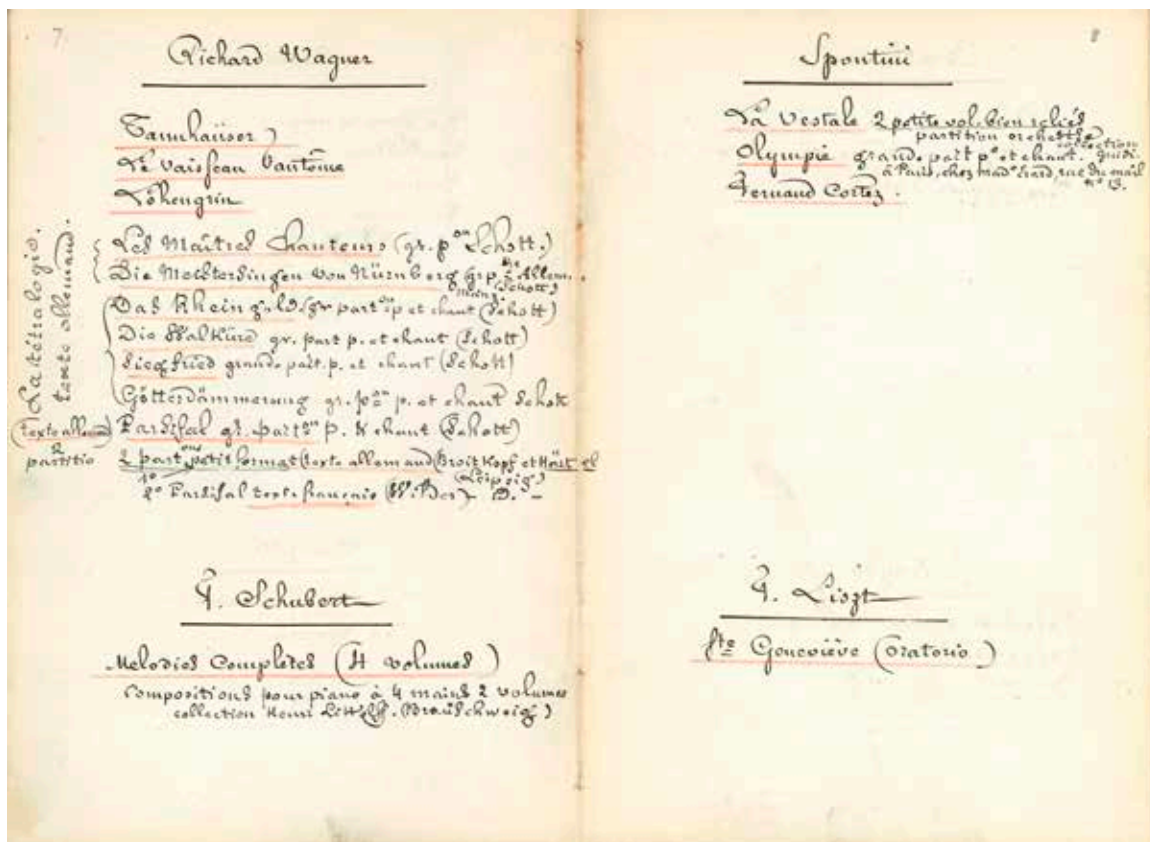 7
Richard Wagner
Tannhaüser
Le Vaisseau Fantôme
Lohengrin
Les Maîtres Chanteurs (gr. pon Schott.)
Die Meistersingen von Nürnberg
(Schott)
Das Rheingold (gr part on p et chant (Schott)
Die Walküre gr. part p. et chant (Schott)
Siegfried grande part. p. et chant (Schott)
Götterdämmerung gr. pon p. et chant Schott
La tétralogie.
texte allemand.
Parsifal gr. parton p. & chant (Schott)
(texte allemand)
2
partitio
2 partons petit format (texte allemand (Breitkopf et Härtel
1o (Leipzig)
2o Parsifal texte français (Wilder) D. –
F. Schubert
Melodies Complètes (4 volumes)
Compositions pour piano à 4 mains 2 volumes
collection Henri Litolff. (Braüschweig)
8
Spontini
La Vestale 2 petits vol. bien reliés
partition orchestre
collection
Olympie grande part po et chant. Guidi.
à Paris, chez made Erard, rue du mail
no 13.
Fernand Cortez.
F. Liszt
Ste Geneviève (Oratorio)